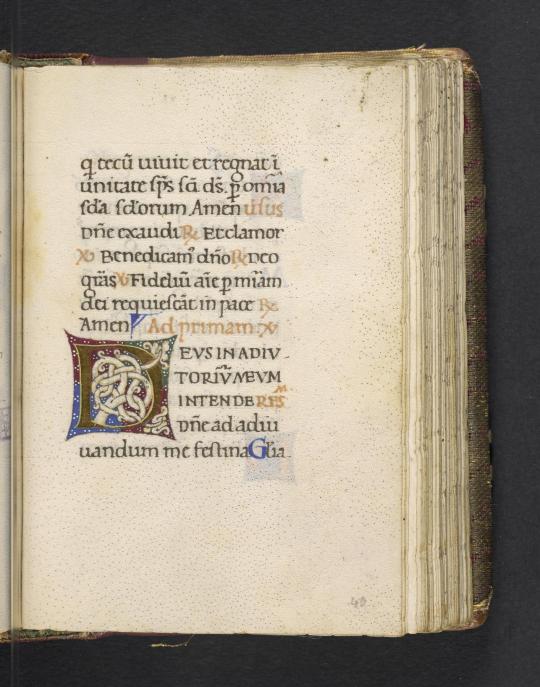 q̃ tecū uiuit et regnat ī
ūnitate sp̃s sc̃i d̃s. p̄ om̃ia
sc̃la sc̃lorum Amen ũsus
Dñe exaudi ℟ Et clamor
℣ Benedicam᷒ dño ℟ Deo
gr̃as ℣ Fideliū aĩe p̄ m̃iam
dei requiescāt in pace ℟
Amen Ad primam: ℣
DEVS IN ADIV-
TORIŪ MEVM
INTENDE RES̃
Dñe ad adiu
uandum me festina Gl̃ia.
49